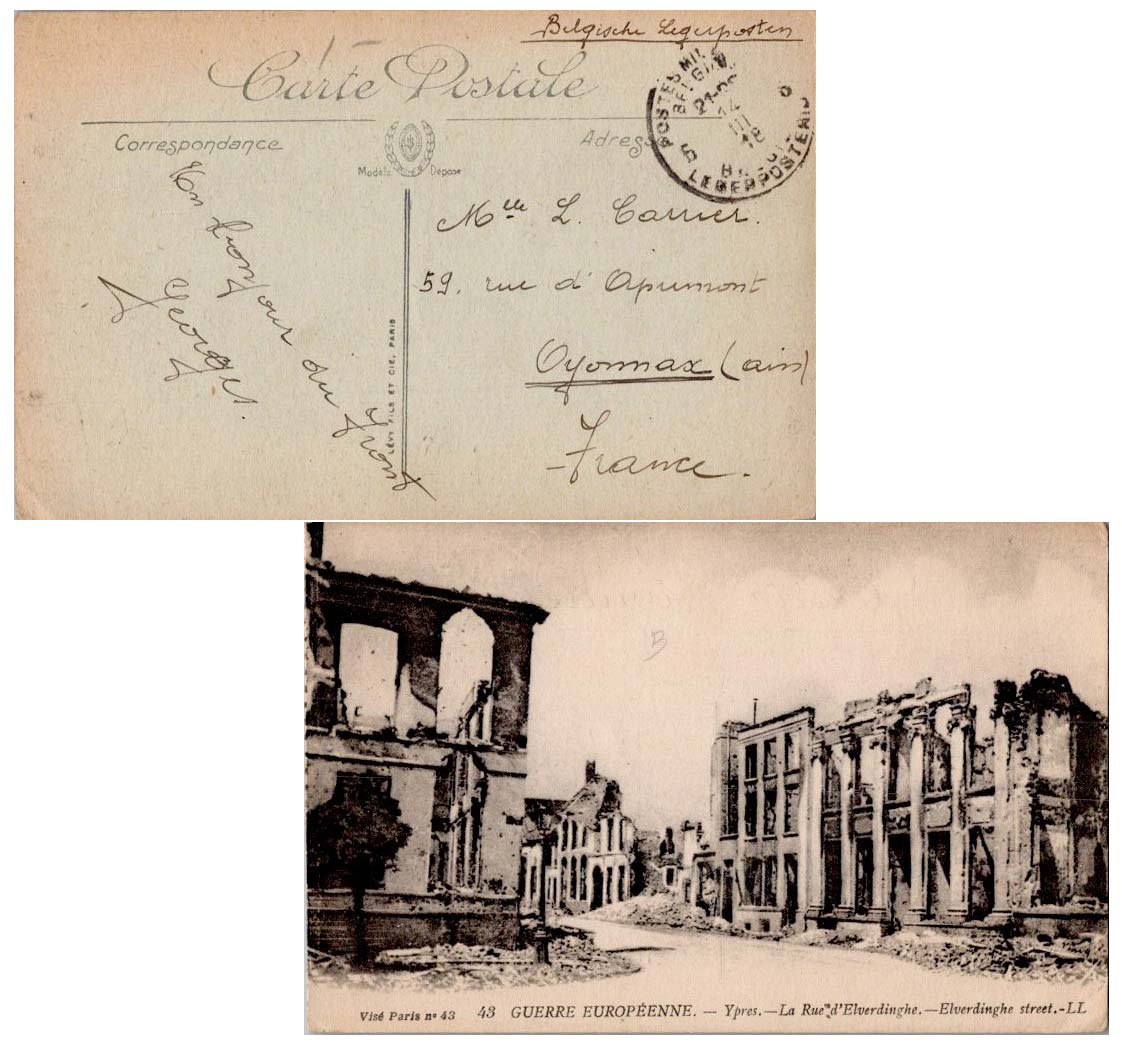 Belgische Legerposten
Carte Postale
Correspondance
Adresse
Modèle Déposé
POSTES MIL
BELGI
14
III
18
5
LEGERPOSTERIJ
Un bonjour du front
Georges.
LÉVY FILS ET CIE, PARIS
Melle L. Carrier.
59, rue d'Apremont
Oyonnax (ain)
France.
B
Visé Paris nº 43 43 GUERRE EUROPÉENNE. — Ypres.—La Rue d'Elverdinghe.—Elverdinghe street.-LL